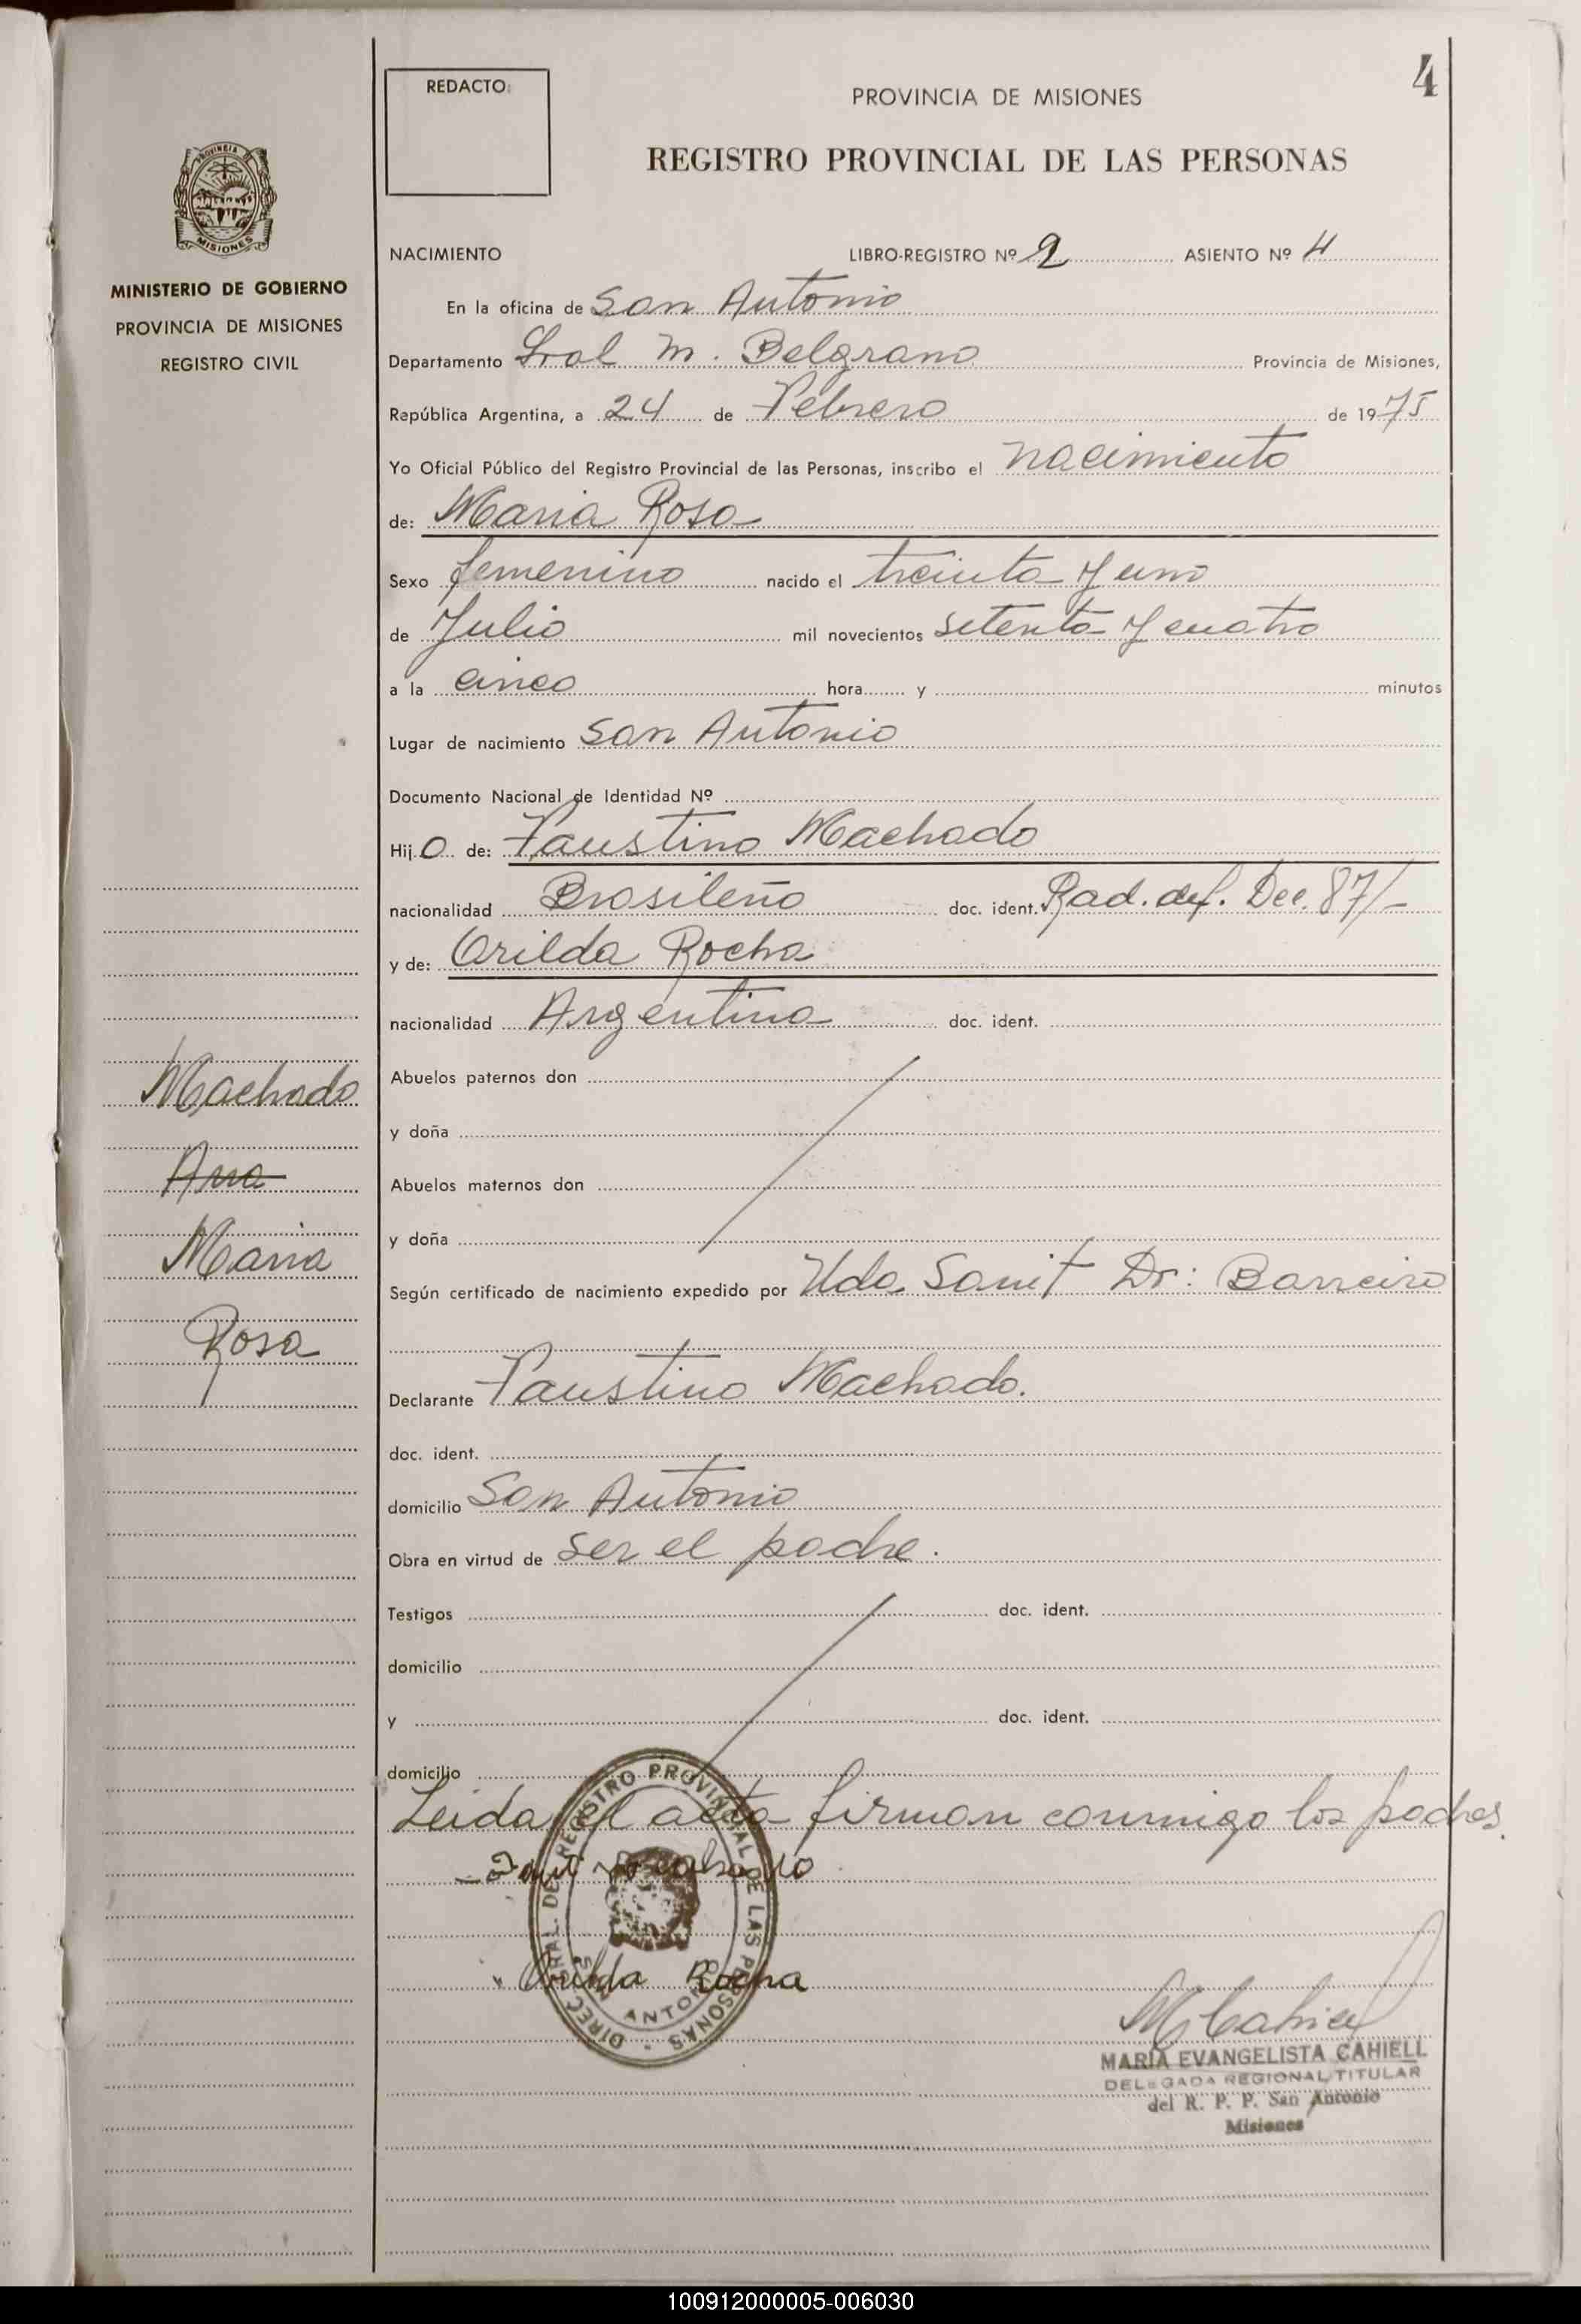 4
REDACTO:
PROVINCIA DE MISIONES
REGISTRO PROVINCIAL DE LAS PERSONAS
PROVINCIA DE
MISIONES
MINISTERIO DE GOBIERNO
PROVINCIA DE MISIONES
REGISTRO CIVIL
NACIMIENTO LIBRO-REGISTRO Nº 2 ASIENTO Nº 4
En la oficina de San Antonio
Departamento Gral M. Belgrano Provincia de Misiones,
República Argentina, a 24 de Febrero de 1975
Yo Oficial Público del Registro Provincial de las Personas, inscribo el nacimiento
de: Maria Rosa
Sexo femenino nacido el treinta y uno
de Julio mil novecientos setenta y cuatro
a la cinco hora y minutos
Lugar de nacimiento San Antonio
Documento Nacional de Identidad Nº
Hij o de: Faustino Machado
nacionalidad Brasileño doc. ident. Rad. def. Dec. 87/-
y de: Orilda Rocha
nacionalidad Argentina doc. ident.
Abuelos paternos don
y doña
Abuelos maternos don
y doña
Según certificado de nacimiento expedido por Uda Sanit Dr: Barreiro
Declarante Faustino Machado.
doc. ident.
domicilio San Antonio
Obra en virtud de ser el padre.
Testigos doc. ident.
domicilio
y doc. ident.
domicilio
Leida el acta firman conmigo los padres.
Orilda Rocha
DIREC. GRAL. DE REGISTRO PROVINCIAL DE LAS PERSONAS
ANTONIO
M Cahiell
MARÍA EVANGELISTA CAHIELL
DELEGADA REGIONAL TITULAR
del R. P. P. San Antonio
Misiones
Machado
Ana
Maria
Rosa
100912000005-006030